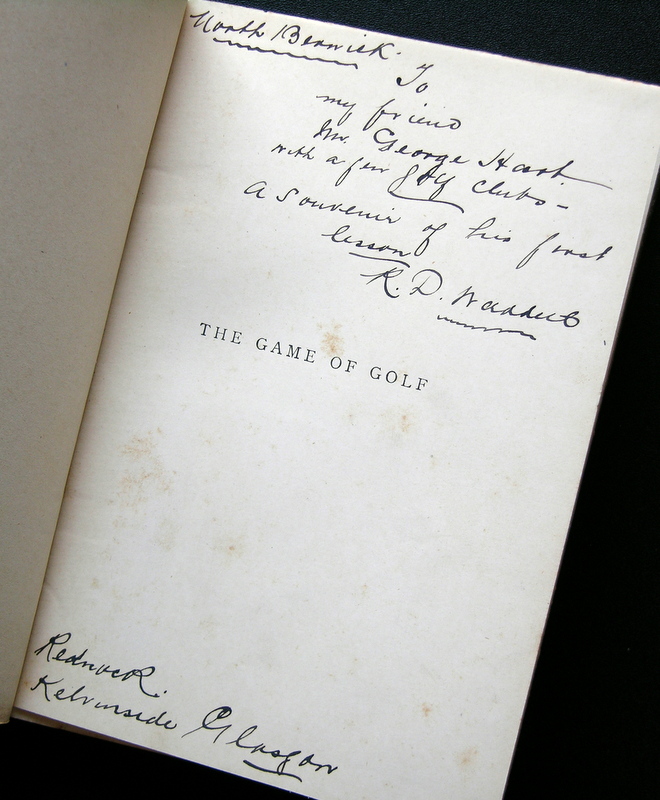 North Berwick.
To
my friend
Mr. George Hart
with a few golf clubs -
A souvenir of his first
lesson
R. D. Waddell
THE GAME OF GOLF
Rednock.
Kelvinside Glasgow